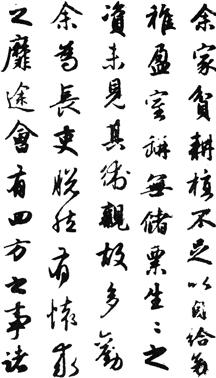 余家貧耕植不足以自給幼
稚盈室缾無儲粟生〻之
資未見其術親故多勸
余為長吏脫然有懷求
之靡途會有四方之事諸